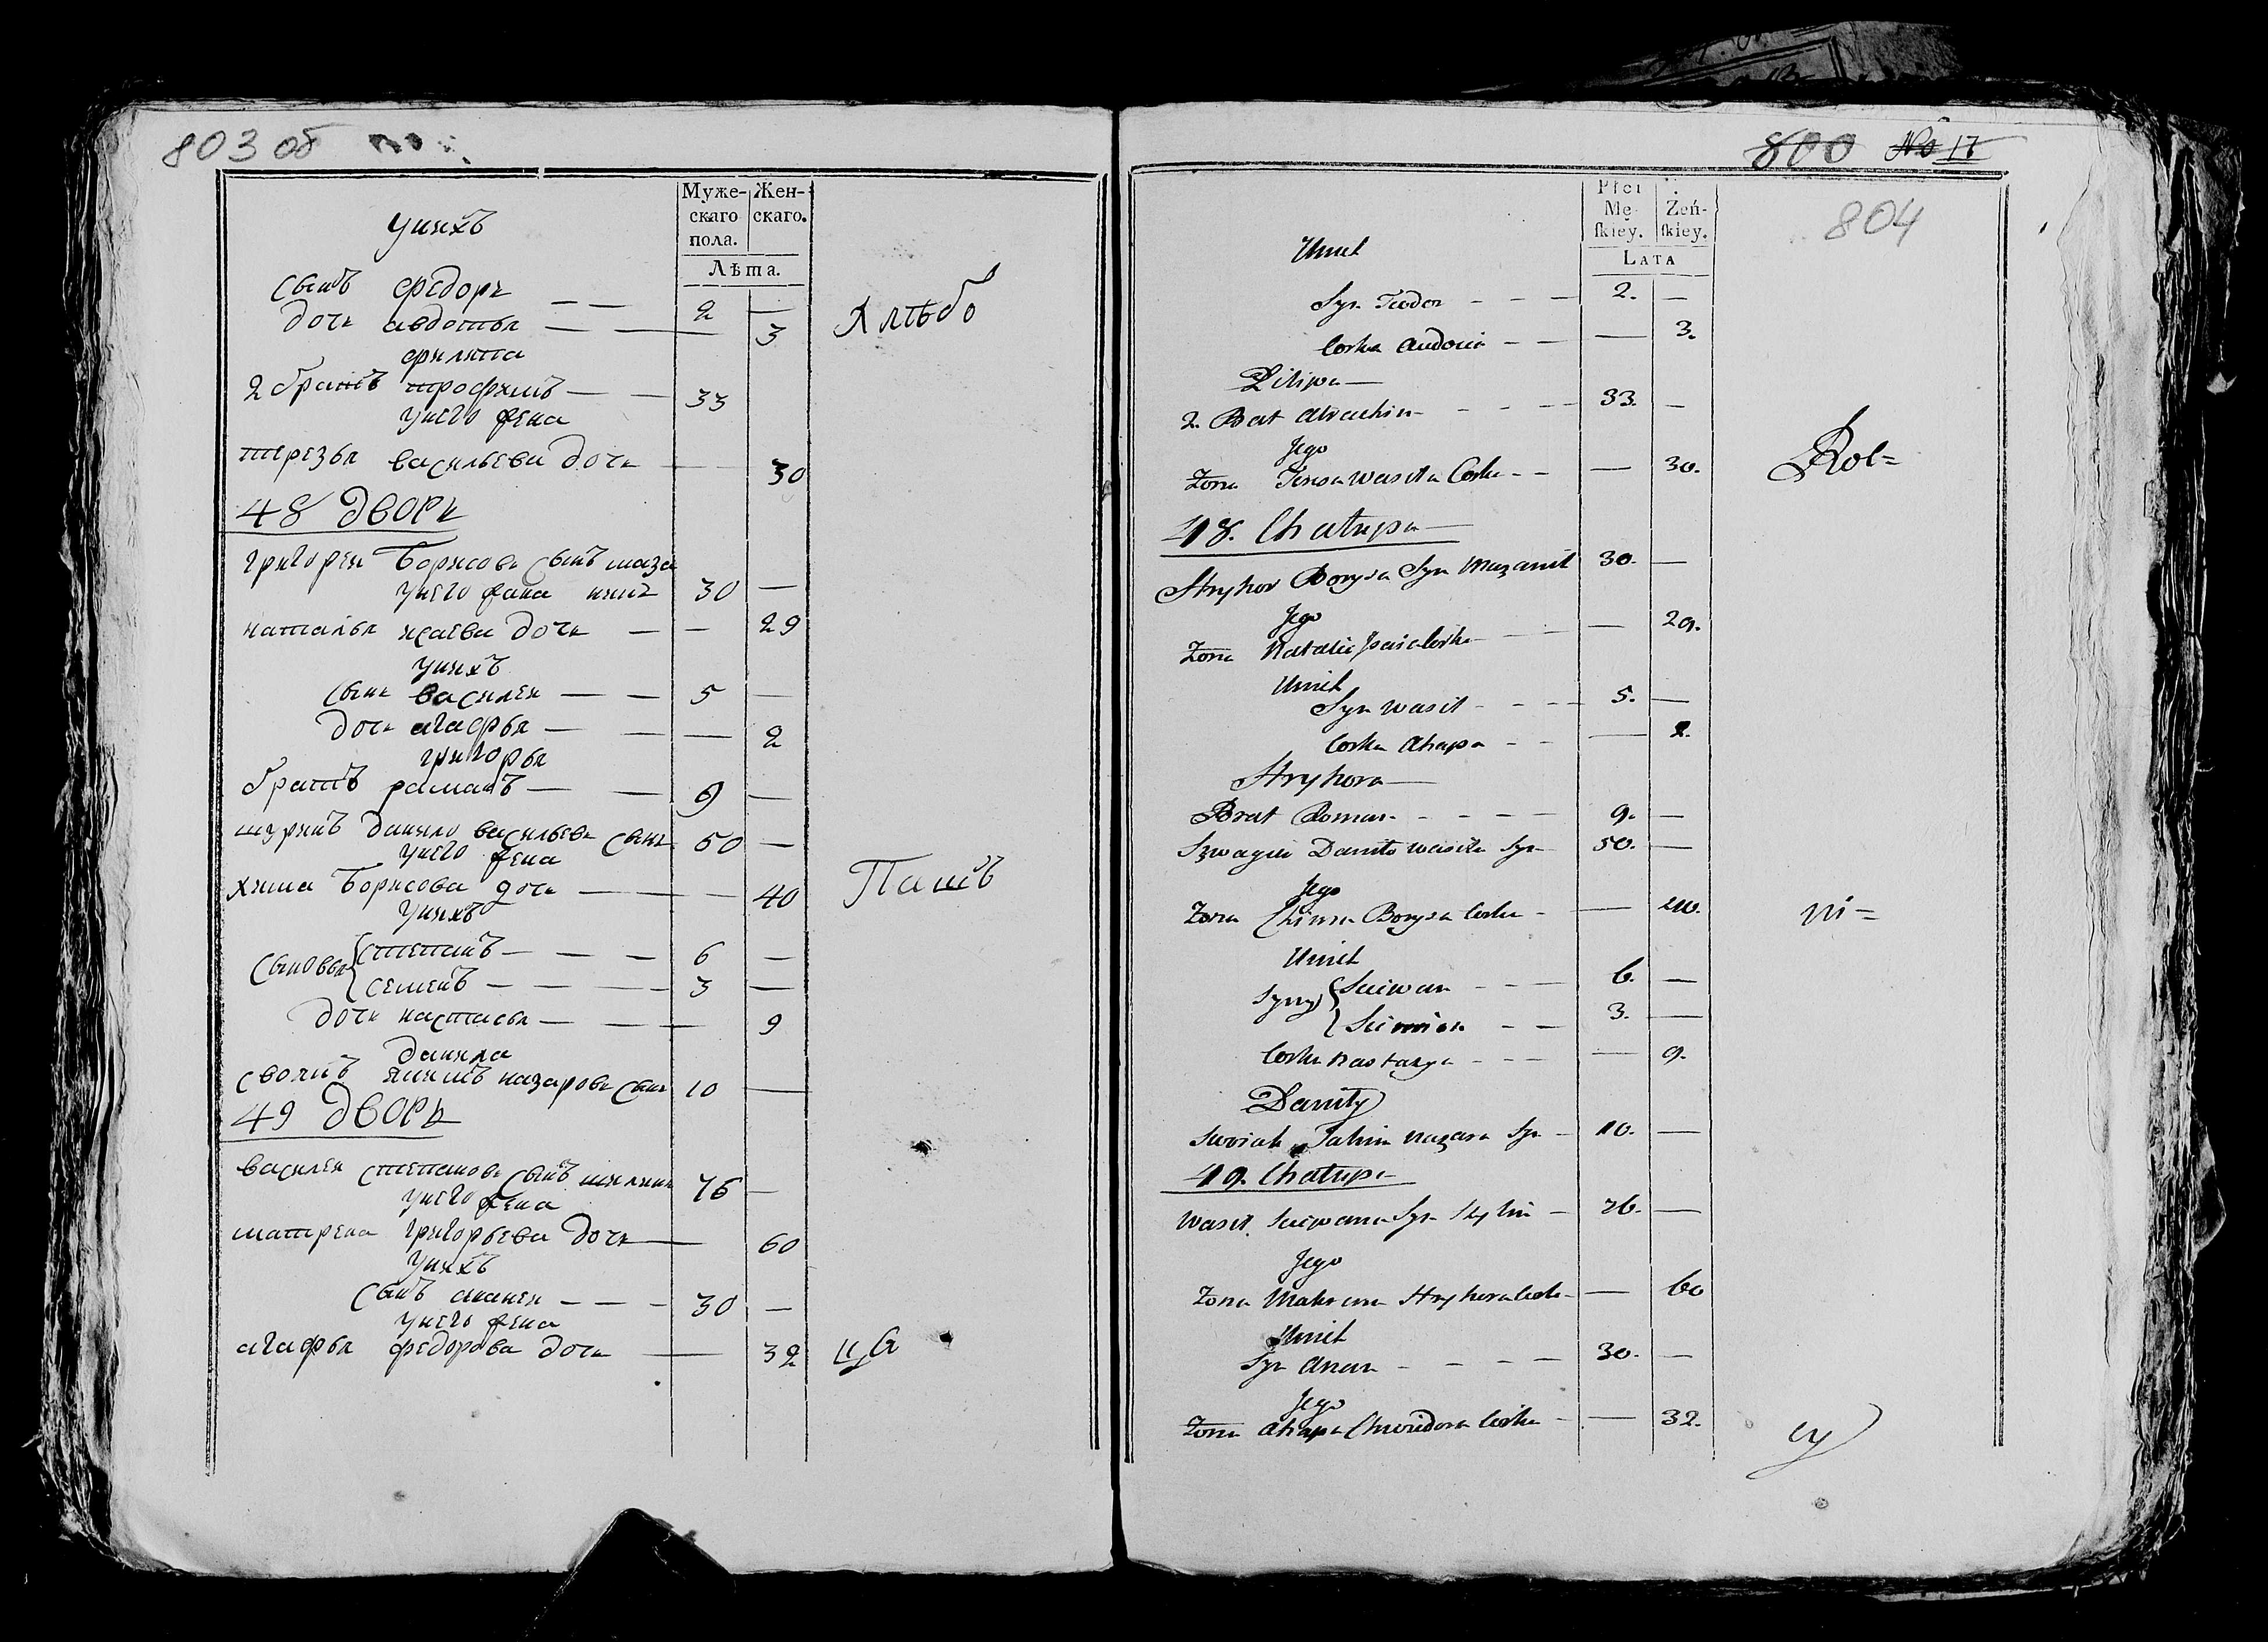 803 об
Муже- Жен-
скаго скаго.
пола.
Лѣта.
унихъ
сынъ федоръ — — 2 —
дочь авдотья — — — 3
Хлѣбо
филипа
2 братъ трофимъ — — 33
унего жена
терезья васильева дочь — — 30
48 дворъ
григореи борисовъ сынъ маза
унего жена нинъ 30 —
наталья исаева дочь — — 29
унихъ
сынъ василеи — — 5 —
дочь агафья — — — 2
григорья
братъ раманъ — — 9 —
шуринъ данило васильевъ сынъ 50 —
унего жена
хима борисова дочь — — 40
Пашъ
унихъ
сыновья { степанъ — — — 6 —
семенъ — — — 3 —
дочь настасья — — — 9
данила
своякъ якимъ назаровъ сынъ 10 —
49 дворъ
василеи степановъ сынъ 76 —
унего жена
матрена григорьева дочь — 60
унихъ
сынъ ананеи — — — 30 —
унего жена
агафья федорова дочь — 32
ца
800 No 17
804
Płci
Mę- Żeń-
ſkiey. ſkiey.
LATA
Unich
Syn Teodor - - - 2. —
Corka Audocia - - — 3.
Pilipa —
2. Brat - - - 33. —
Jego
Zona Teresa Wasila Corka - - — 30.
Rol=
48. Chałupa
Hryhor Borysa Syn Mazanik 30. —
Jego
Zona Natalia Jsaia Corka - - — 29.
Unich
Syn Wasil - - - 5. —
Corka Ahapa - - — 2.
Hryhora —
Brat Roman - - - - 9. —
Szwagier Daniło Wasila Syn 50. —
Jego
Zona Chima Borysa Corka - — 40.
ni=
Unich
Syny { Sciepan - - - 6. —
Siemion - - 3. —
Corka Nastazya - - - — 9.
Daniły
Swoiak Jakim Nazara Syn - 10. —
49. Chałupa
Wasil Sciepana Syn - 76. —
Jego
Zona Matrona Hryhora Corka - — 60
Unich
Syn Anan - - - - 30. —
Jego
Zona Ahapa Chwiedora Corka - — 32.
cy